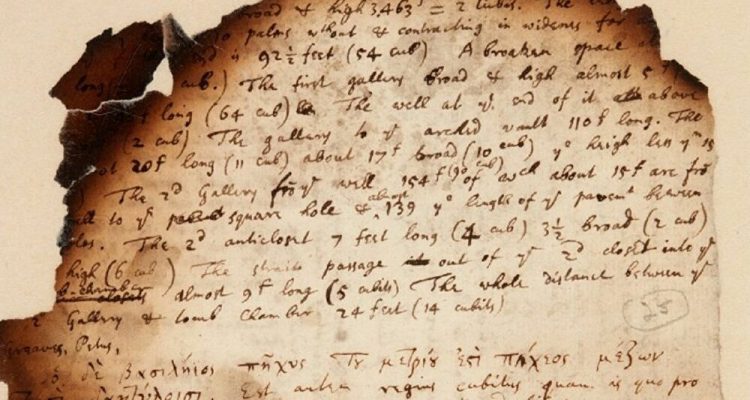 broad & high 3,463 = 2 cubes. The
to palms without & contracting in wideness for a
is 92½ feet (54 cub) A broaken space
long ( cub.) The first gallery broad & high almost 5
long (64 cub) The well at yͤ end of it above
2 cub). The gallery to yͤ arched vault 110f long. The
20f long (11 cub) about 17f broad (10 cub) yͤ heigh less yⁿ 15
The 2d Gallery frō yͤ well 154f (90 cub) of wch about 15f are frō
to yͤ square hole & almost 139 yͤ length of yͤ pavemt between
The 2d anticloset 7 feet long (4 cub) 3½ broad (2 cub)
high (6 cub) The strait passage out of yͤ 2d closet into yͤ
almost 9f long (5 cubits) The whole distance between yͤ
2 Gallery & tomb chamber 24 feet (14 cubits)
25
Greaves,
δὲ βασιλήιος πῆχυς τȣ μετρίȣ ἐςὶ πήχεος μέζων
Est autem regius cubitus quam is quo pro